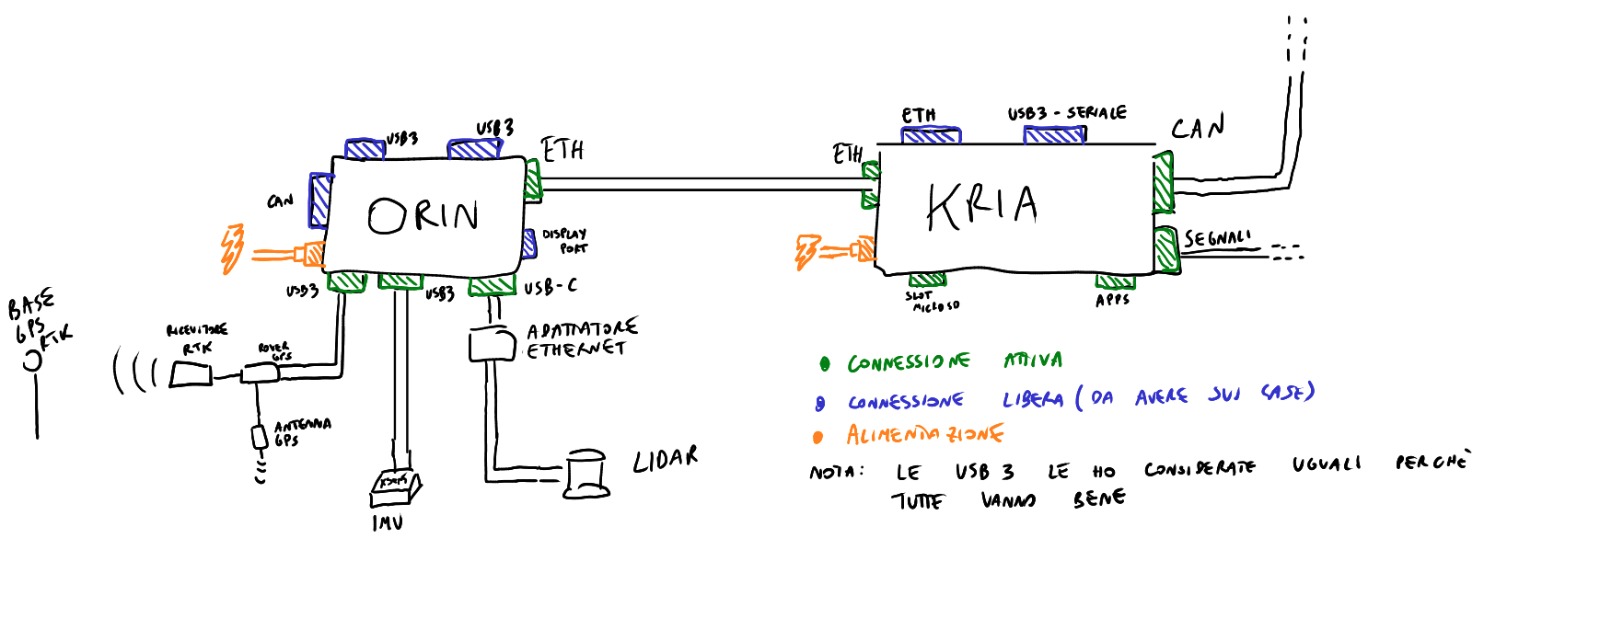 USB3
USB3
ETH
CAN
ORIN
DISPLAY
PORT
USB3
USB3
USB-C
ADATTATORE
ETHERNET
BASE
GPS
RTK
RICEVITORE
RTK
ROVER
GPS
ANTENNA
GPS
IMU
LIDAR
ETH
USB3 - SERIALE
CAN
ETH
KRIA
SEGNALI
SLOT
MICROSD
APPS
CONNESSIONE ATTIVA
CONNESSIONE LIBERA (DA AVERE SUL CASE)
ALIMENTAZIONE
NOTA: LE USB 3 LE HO CONSIDERATE UGUALI PERCHÈ
TUTTE VANNO BENE